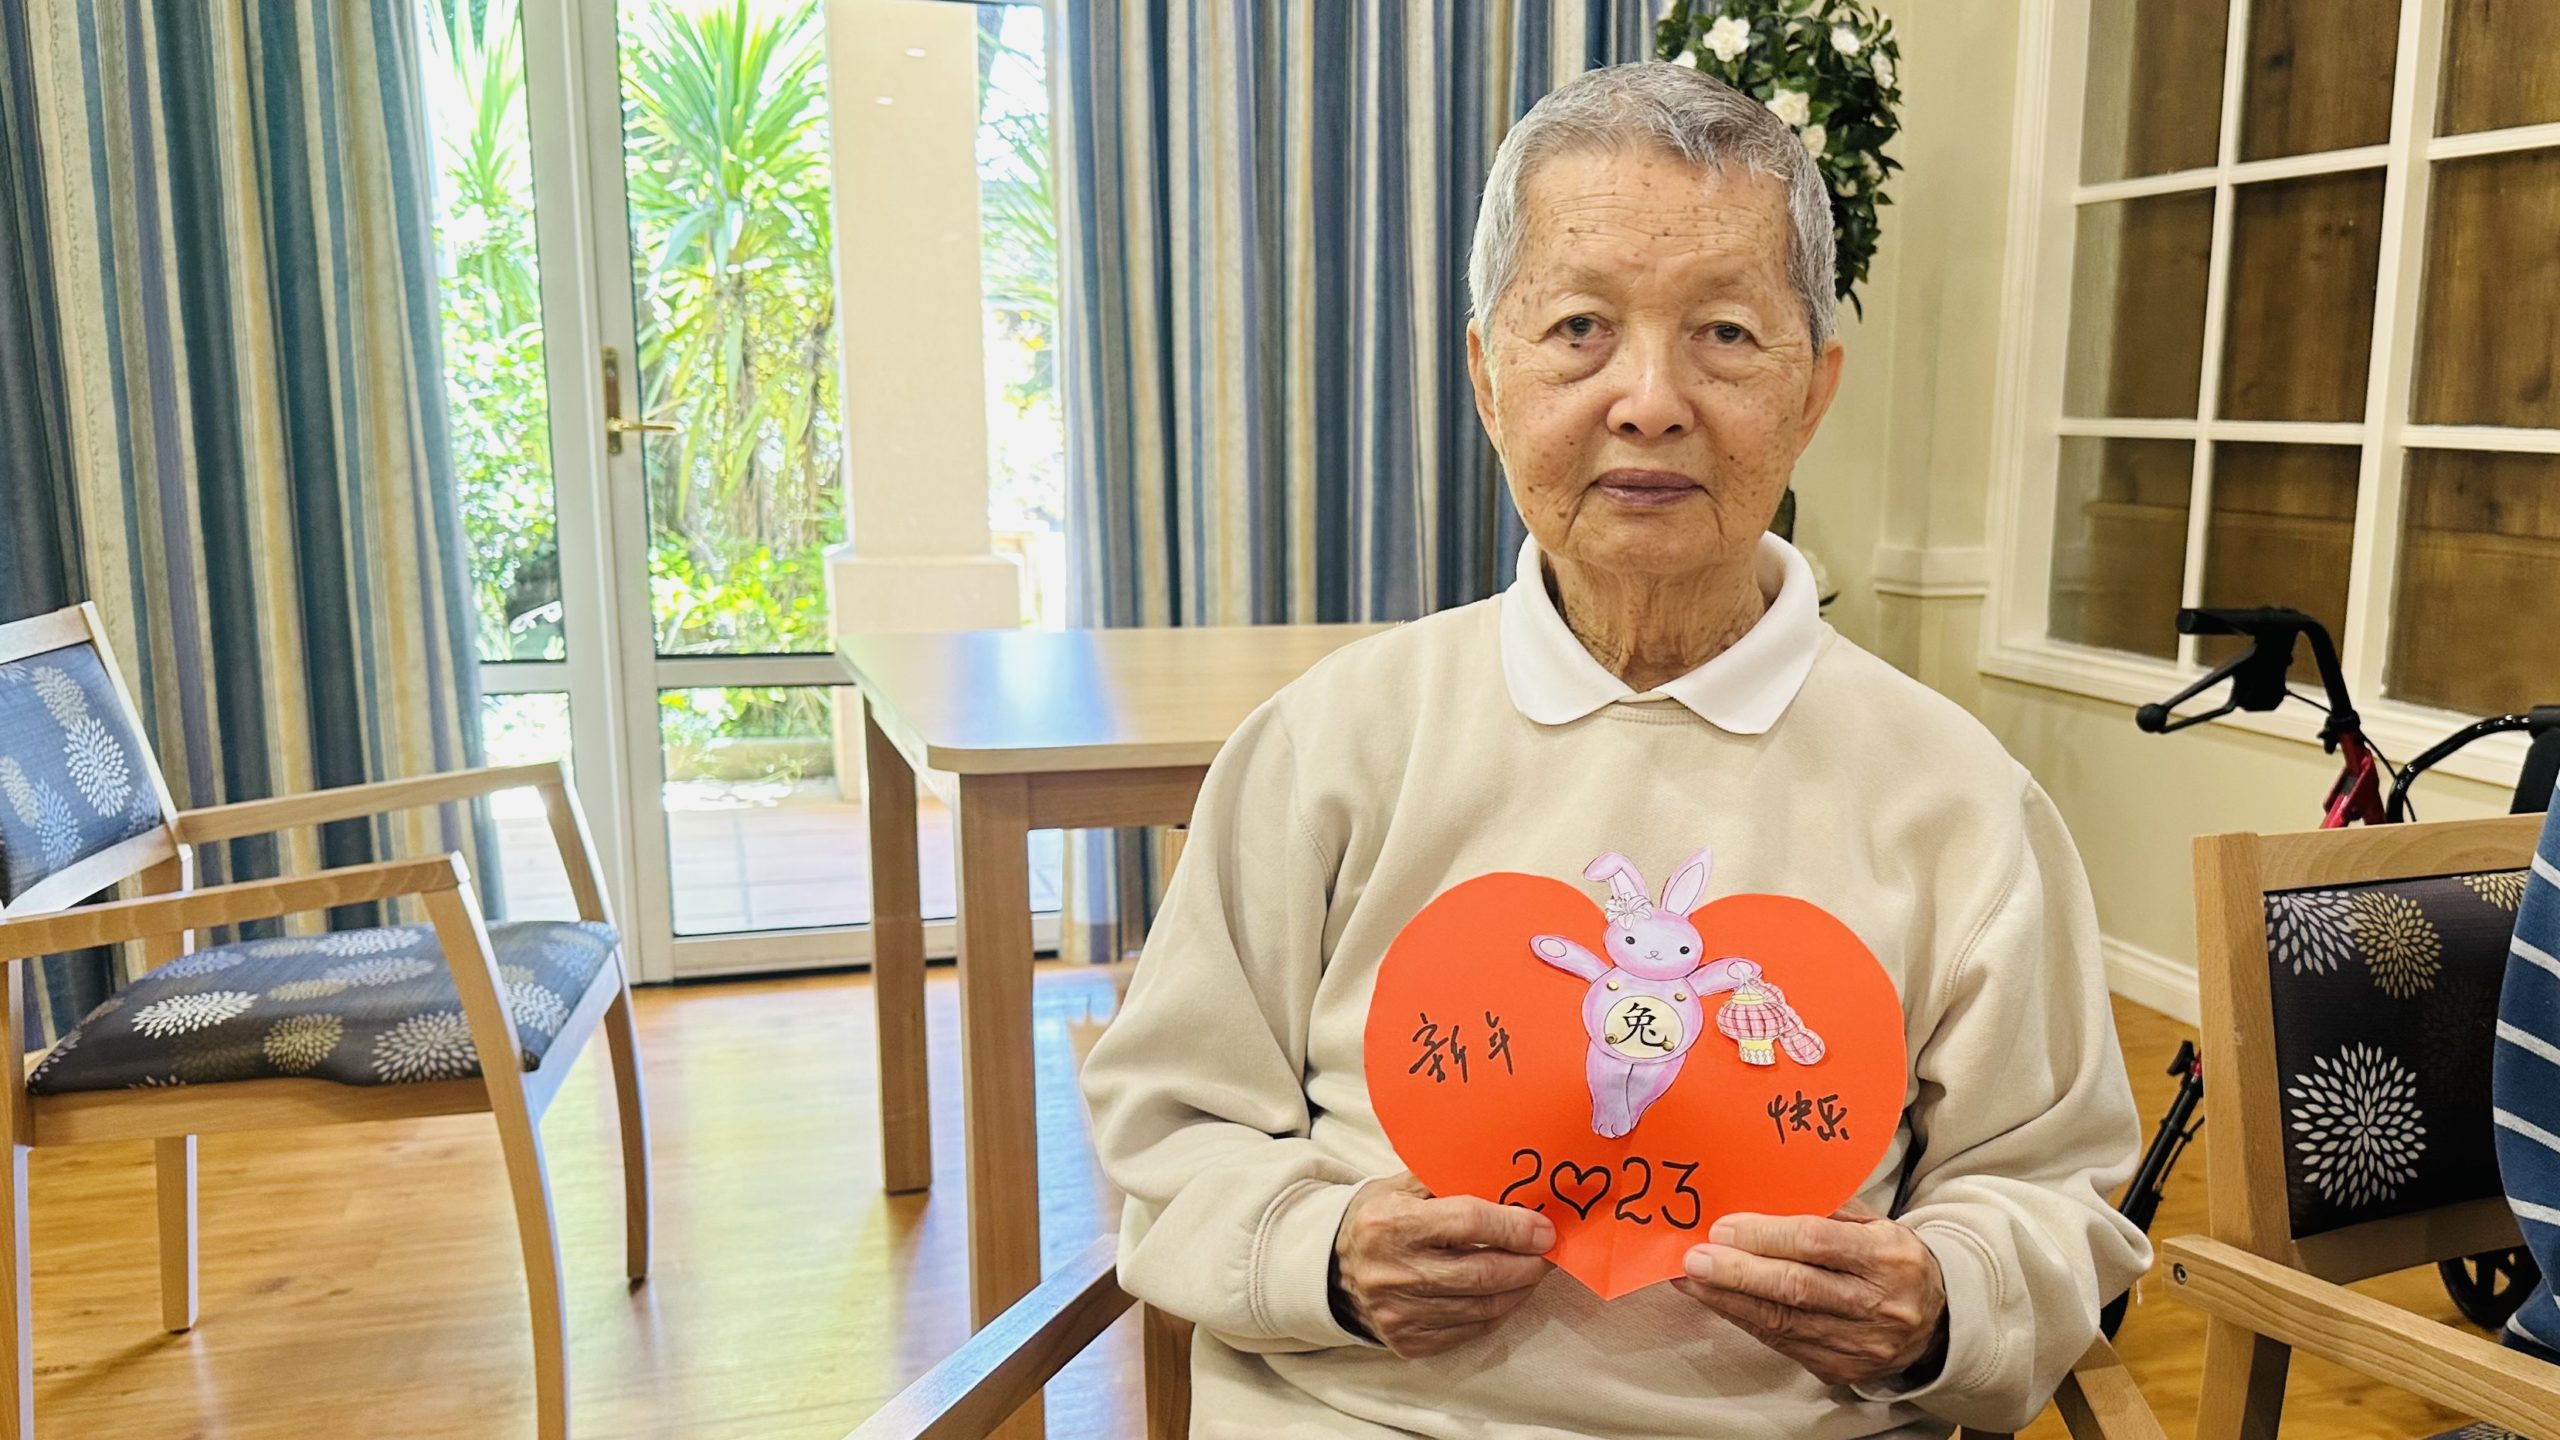 兔
新年
快乐
2♡23